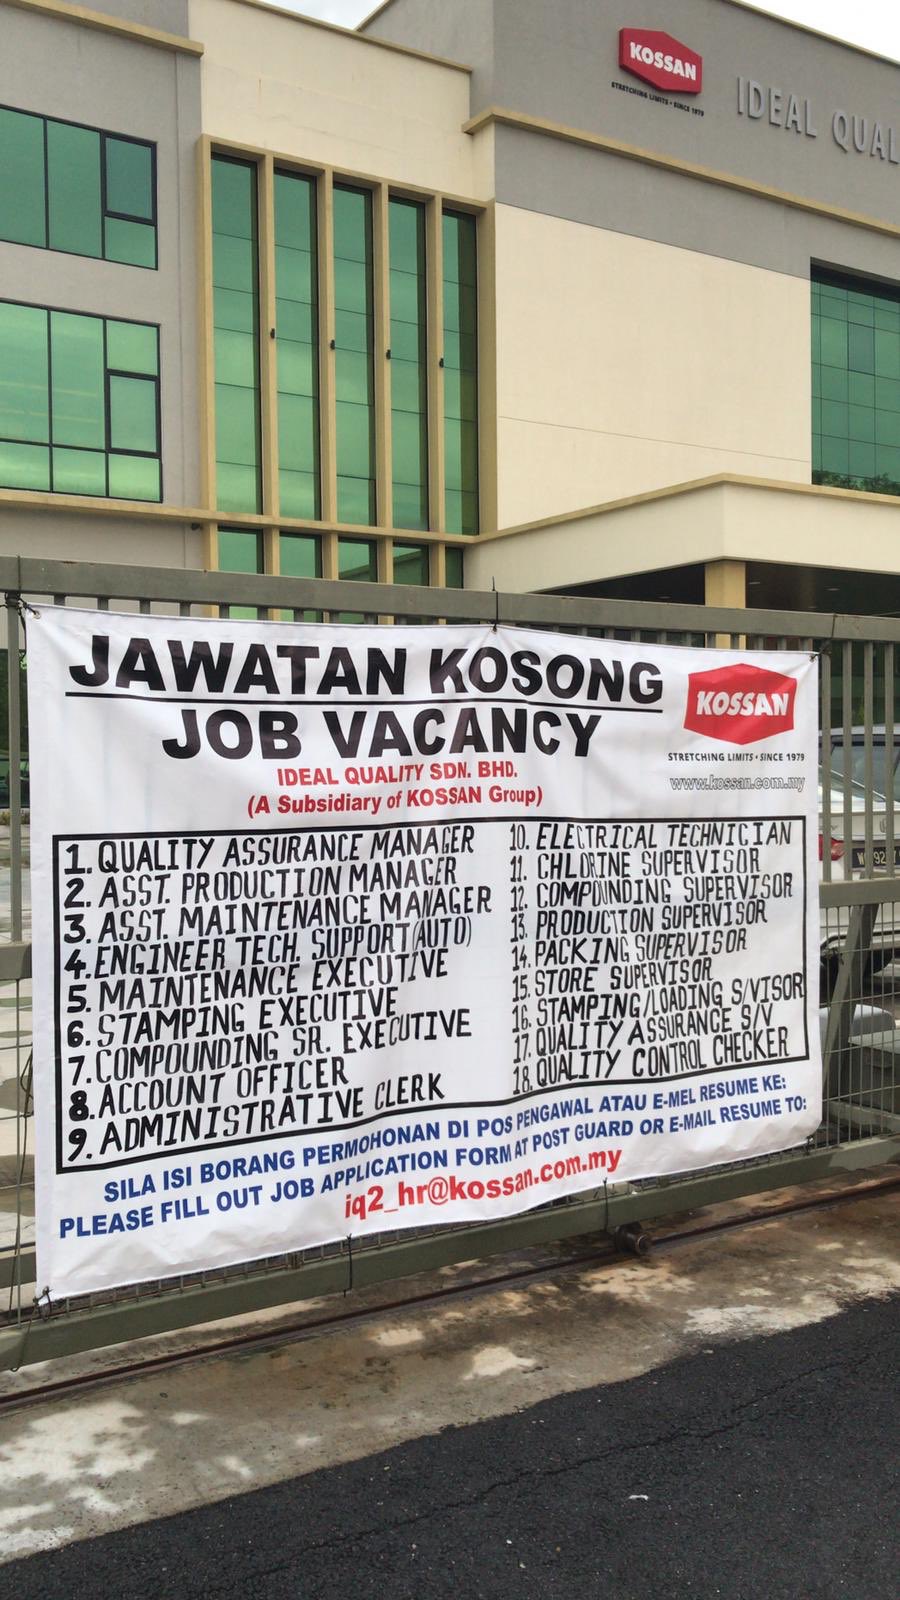 KOSSAN
STRETCHING LIMITS • SINCE 1979
IDEAL QUAL
JAWATAN KOSONG
JOB VACANCY
IDEAL QUALITY SDN. BHD.
(A Subsidiary of KOSSAN Group)
KOSSAN
STRETCHING LIMITS • SINCE 1979
www.kossan.com.my
1. QUALITY ASSURANCE MANAGER
2. ASST. PRODUCTION MANAGER
3. ASST. MAINTENANCE MANAGER
4. ENGINEER TECH. SUPPORT (AUTO)
5. MAINTENANCE EXECUTIVE
6. STAMPING EXECUTIVE
7. COMPOUNDING SR. EXECUTIVE
8. ACCOUNT OFFICER
9. ADMINISTRATIVE CLERK
10. ELECTRICAL TECHNICIAN
11. CHLORINE SUPERVISOR
12. COMPOUNDING SUPERVISOR
13. PRODUCTION SUPERVISOR
14. PACKING SUPERVISOR
15. STORE SUPERVISOR
16. STAMPING/LOADING S/VISOR
17. QUALITY ASSURANCE S/V
18. QUALITY CONTROL CHECKER
SILA ISI BORANG PERMOHONAN DI POS PENGAWAL ATAU E-MEL RESUME KE:
PLEASE FILL OUT JOB APPLICATION FORM AT POST GUARD OR E-MAIL RESUME TO:
iq2_hr@kossan.com.my